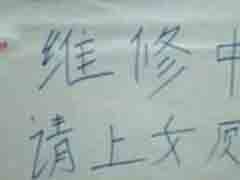 维修中
请上女厕